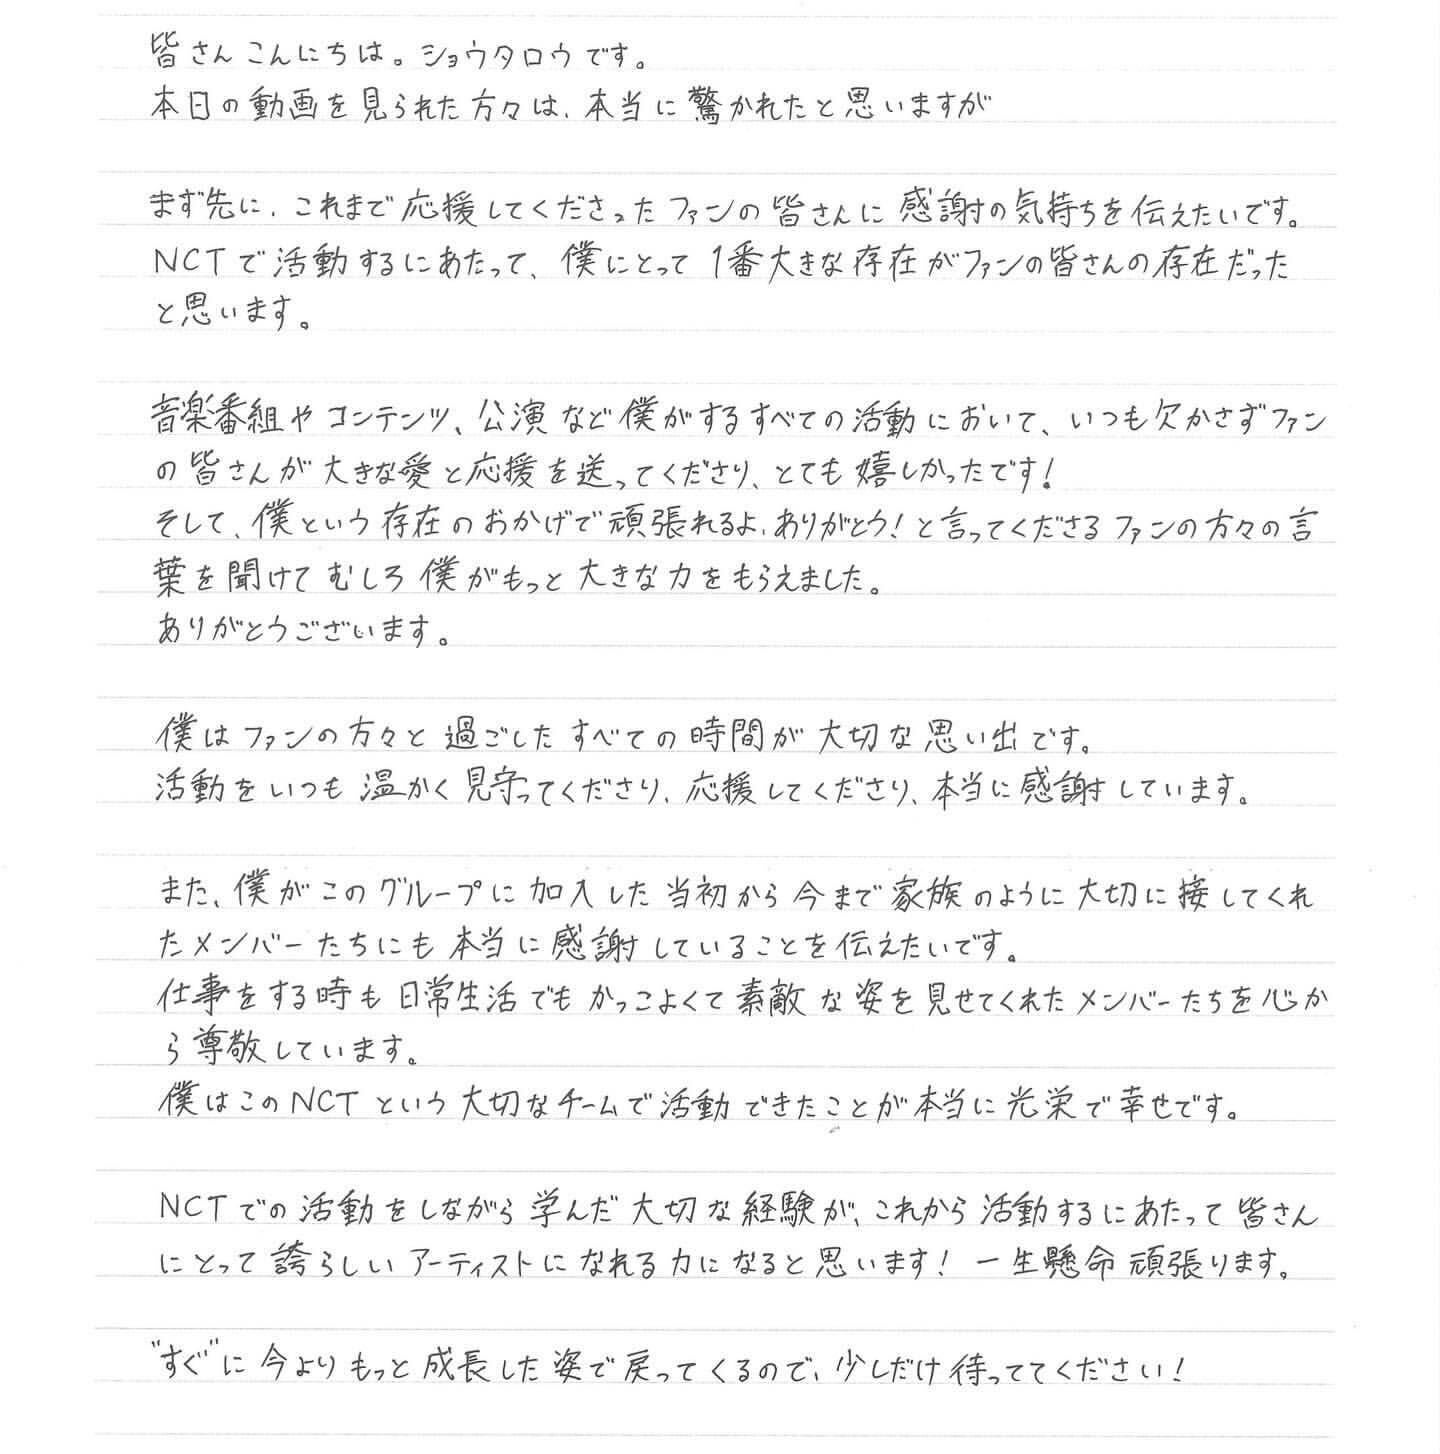 皆さんこんにちは。ショウタロウです。
本日の動画を見られた方々は、本当に驚かれたと思いますが
まず先に、これまで応援してくださったファンの皆さんに感謝の気持ちを伝えたいです。
NCTで活動するにあたって、僕にとって1番大きな存在がファンの皆さんの存在だった
と思います。
音楽番組やコンテンツ、公演など僕がするすべての活動において、いつも欠かさずファン
の皆さんが大きな愛と応援を送ってくださり、とても嬉しかったです!
そして、僕という存在のおかげで頑張れるよ、ありがとう!と言ってくださるファンの方々の言
葉を聞けてむしろ僕がもっと大きな力をもらえました。
ありがとうございます。
僕はファンの方々と過ごしたすべての時間が大切な思い出です。
活動をいつも温かく見守ってくださり、応援してくださり、本当に感謝しています。
また、僕がこのグループに加入した当初から今まで家族のように大切に接してくれ
たメンバーたちにも本当に感謝していることを伝えたいです。
仕事をする時も日常生活でもかっこよくて素敵な姿を見せてくれたメンバーたちを心か
ら尊敬しています。
僕はこのNCTという大切なチームで活動できたことが本当に光栄で幸せです。
NCTでの活動をしながら学んだ大切な経験が、これから活動するにあたって皆さん
にとって誇らしいアーティストになれる力になると思います!一生懸命頑張ります。
"すぐ"に今よりもっと成長した姿で戻ってくるので、少しだけ待っててください!